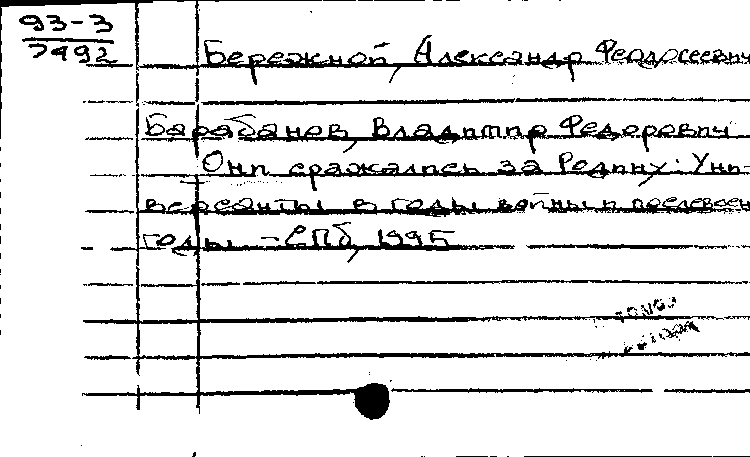 93-3
7492
Бережной, Александр Феодосеевич
Барабанов, Владимир Федорович
Они сражались за Родину: Уни-
версанты в годы войны и послевоен
годы. - СПб, 1995